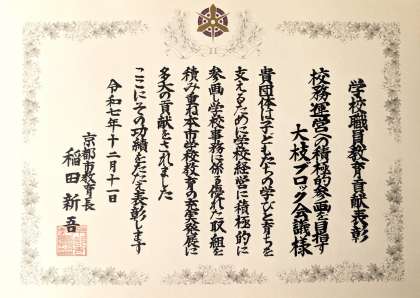 学校職員教育貢献表彰
校務運営への積極的参画を目指す
大枝ブロック会議様
貴団体は子どもたちの学びと育ちを
支えるために学校経営に積極的に
参画し学校事務に係る優れた取組を
積み重ね本市学校教育の充実発展に
多大の貢献をされました
ここにその功績をたたえ表彰します
令和七年十二月十一日
京都市教育長
稲田新吾